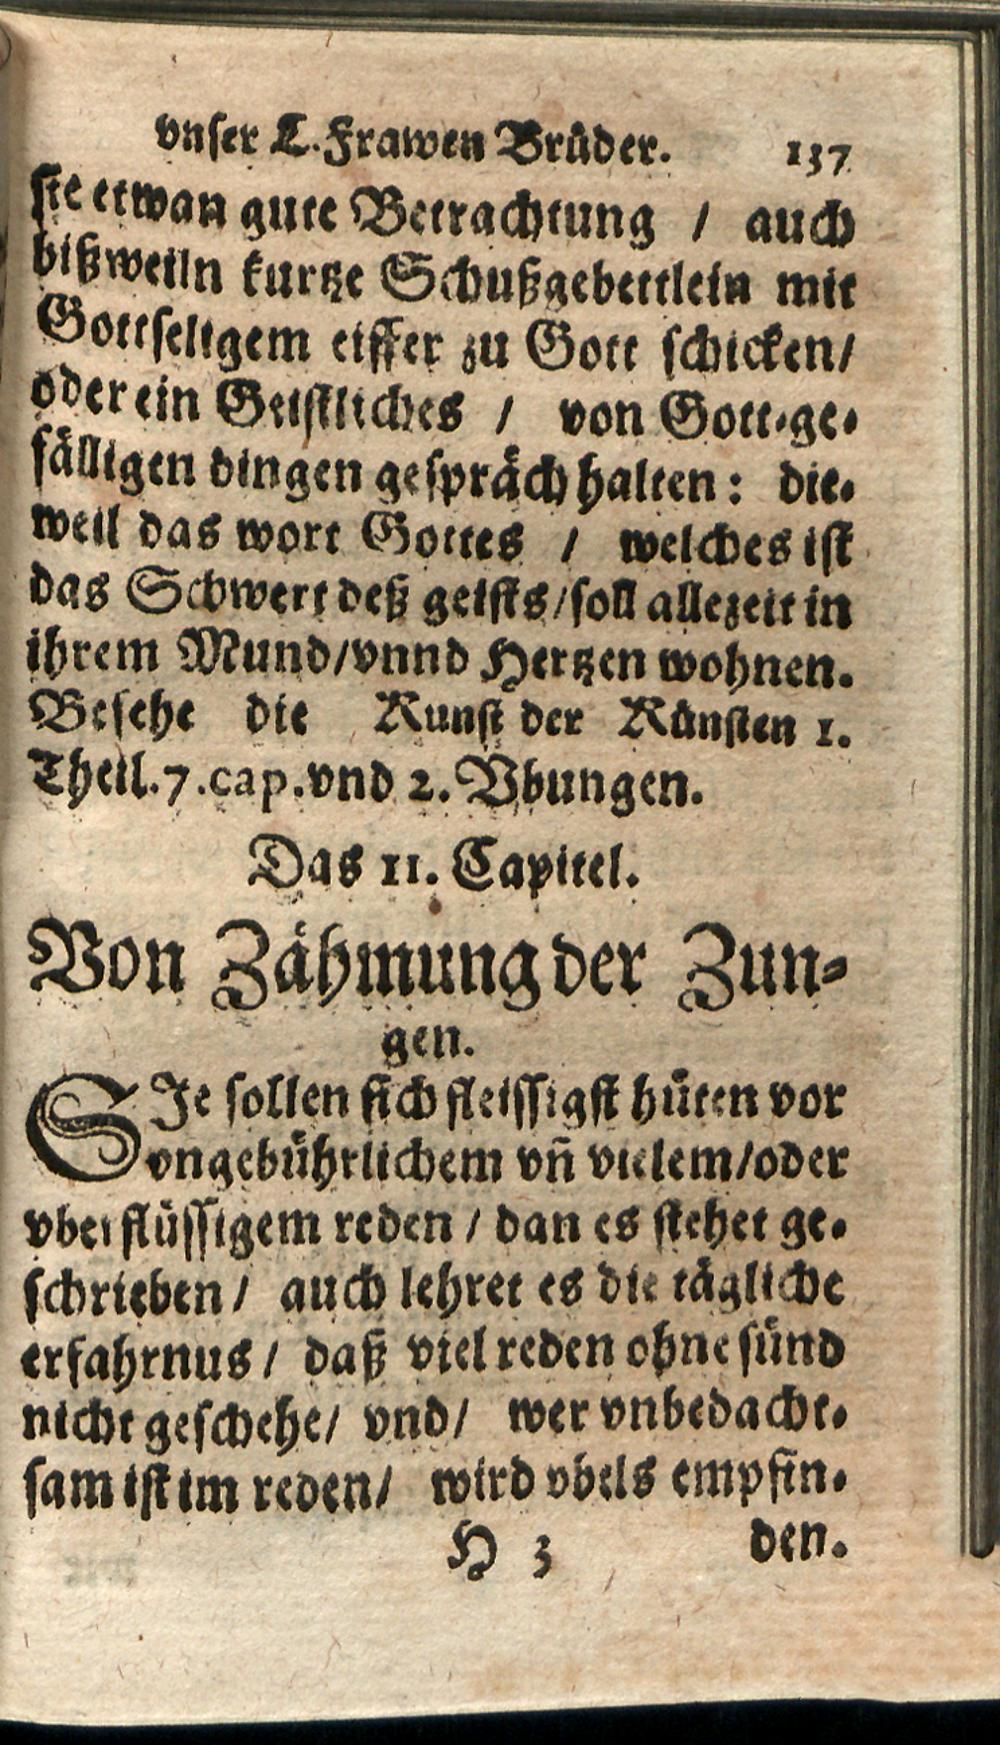 vnser L. Frawen Brüder. 137
sie etwan gute Betrachtung / auch
bißweiln kurtze Schußgebettlein mit
Gottseligem eiffer zu Gott schicken/
oder ein Geistliches / von Gott-ge-
fälligen dingen gespräch halten: die-
weil das wort Gottes / welches ist
das Schwert deß geists/soll allezeit in
ihrem Mund/vnnd Hertzen wohnen.
Besehe die Kunst der Künsten 1.
Theil.7.cap.vnd 2. Vbungen.
Das 11. Capitel.
Von Zähmung der Zun-
gen.
SJe sollen sich fleissigst hüten vor
vngebührlichem vñ vielem/oder
vberflüssigem reden / dan es stehet ge-
schrieben / auch lehret es die tägliche
erfahrnus / daß viel reden ohne sünd
nicht geschehe/ vnd/ wer vnbedacht-
sam ist im reden/ wird vbels empfin-
H 3 den.